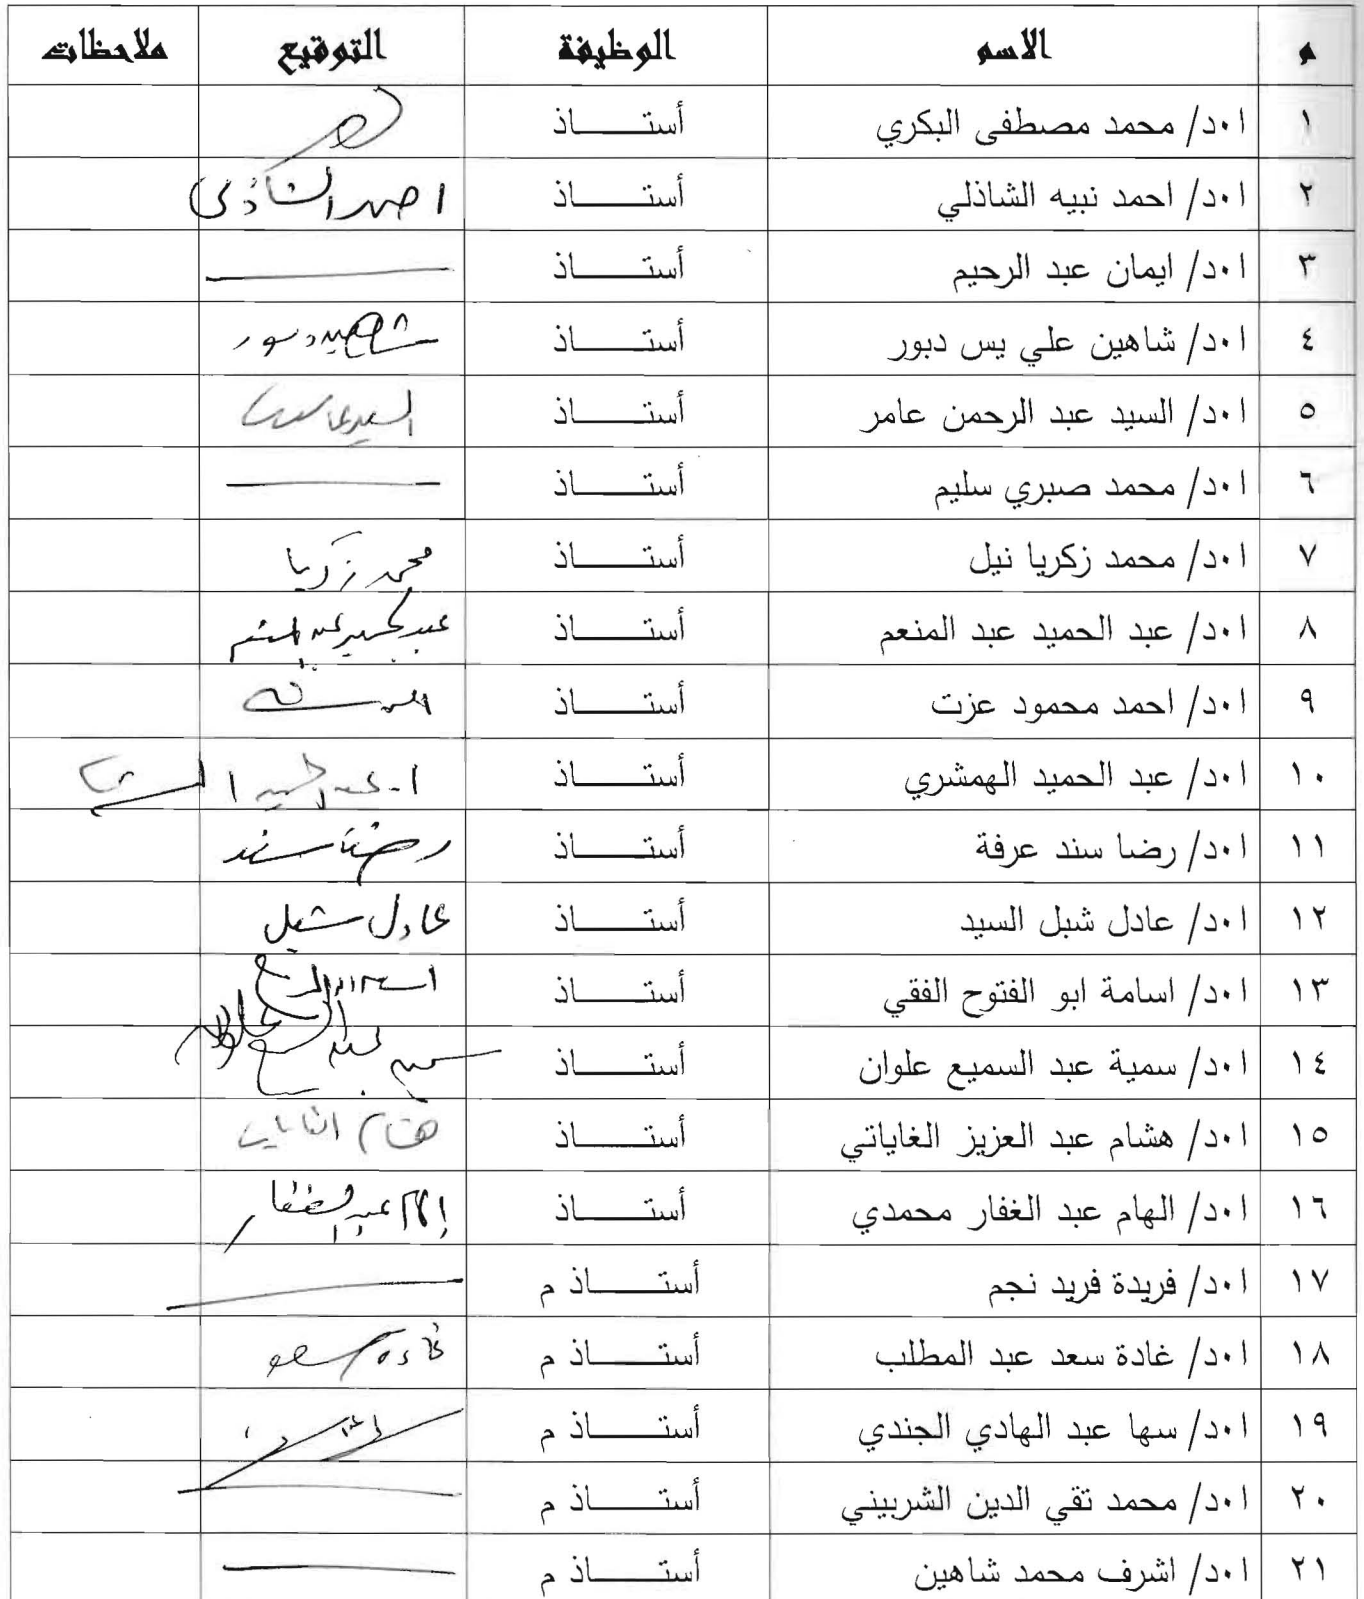 م الاسم الوظيفة التوقيع ملاحظات
١ ا.د/ محمد مصطفى البكري أستــــاذ
٢ ا.د/ احمد نبيه الشاذلي أستــــاذ احمد الشاذلى
٣ ا.د/ ايمان عبد الرحيم أستــــاذ
٤ ا.د/ شاهين علي يس دبور أستــــاذ شاهين دبور
٥ ا.د/ السيد عبد الرحمن عامر أستــــاذ السيد عامر
٦ ا.د/ محمد صبري سليم أستــــاذ
٧ ا.د/ محمد زكريا نيل أستــــاذ محمد زكريا
٨ ا.د/ عبد الحميد عبد المنعم أستــــاذ عبد الحميد عبد المنعم
٩ ا.د/ احمد محمود عزت أستــــاذ
١٠ ا.د/ عبد الحميد الهمشري أستــــاذ
١١ ا.د/ رضا سند عرفة أستــــاذ رضا سند
١٢ ا.د/ عادل شبل السيد أستــــاذ عادل شبل
١٣ ا.د/ اسامة ابو الفتوح الفقي أستــــاذ
١٤ ا.د/ سمية عبد السميع علوان أستــــاذ سمية عبد السميع علوان
١٥ ا.د/ هشام عبد العزيز الغاياتي أستــــاذ هشام الغاياتى
١٦ ا.د/ الهام عبد الغفار محمدي أستــــاذ إلهام عبد الغفار
١٧ ا.د/ فريدة فريد نجم أستــــاذ م
١٨ ا.د/ غادة سعد عبد المطلب أستــــاذ م غادة سعد
١٩ ا.د/ سها عبد الهادي الجندي أستــــاذ م
٢٠ ا.د/ محمد تقي الدين الشربيني أستــــاذ م
٢١ ا.د/ اشرف محمد شاهين أستــــاذ م